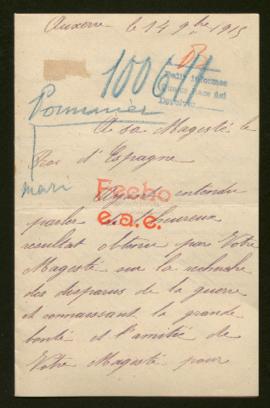 Auxerre le 14 9bre 1915
10064
Pommier
mari
A Sa Magesté le
Roi d'Espagne
Hecho
e.a.e.
Ayant entendu
parler de l'heureux
resultat obtenu par Votre
Magesté sur la recherche
des disparus de la guerre
et connaissant la grande
bonté et l'amitié de
Votre Magesté pour